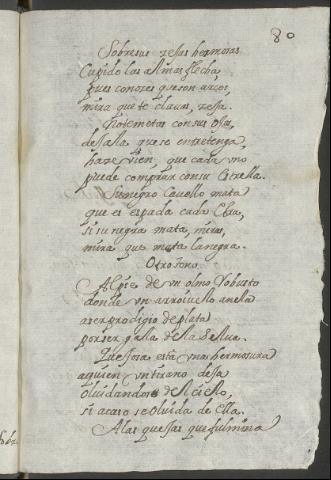 80
Sobre sus zejas hermosas
Cupido las almas flecha,
pues conozes que son arcos,
mira que te clavas, zeja.
No te metas con sus ojos,
dejala que se entretenga,
haze vien, que cada uno
puede comprar con su Estrella.
Su negro Cavello mata
que es espada cada Ebra,
si su negra mata, mira,
mira que mata la negra.
Otro tono
Al pie de un olmo robusto
donde un arroiuelo anela
a ser prodigio de plata
por ser gala de la Selva.
Quejosa está una hermosura
a quien un tirano deja
olvidandose del Cielo,
si acaso se olvida de Ella.
A las quejas que fulmina